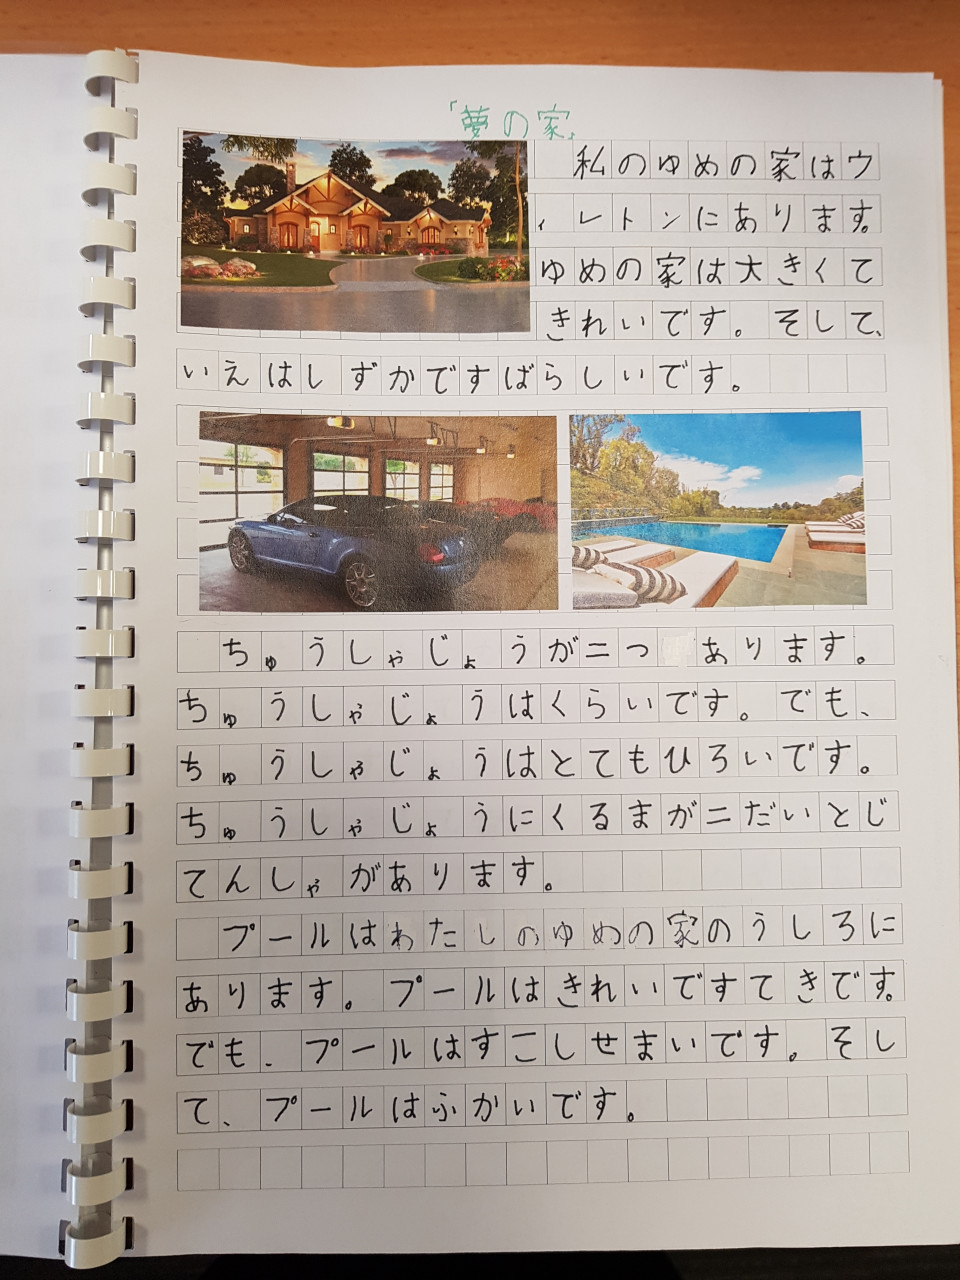 「夢の家」
私のゆめの家はウ
ィレトンにあります。
ゆめの家は大きくて
きれいです。そして、
いえはしずかですばらしいです。
ちゅうしゃじょうが二つあります。
ちゅうしゃじょうはくらいです。でも、
ちゅうしゃじょうはとてもひろいです。
ちゅうしゃじょうにくるまが二だいとじ
てんしゃがあります。
プールはわたしのゆめの家のうしろに
あります。プールはきれいですてきです。
でも、プールはすこしせまいです。そし
て、プールはふかいです。